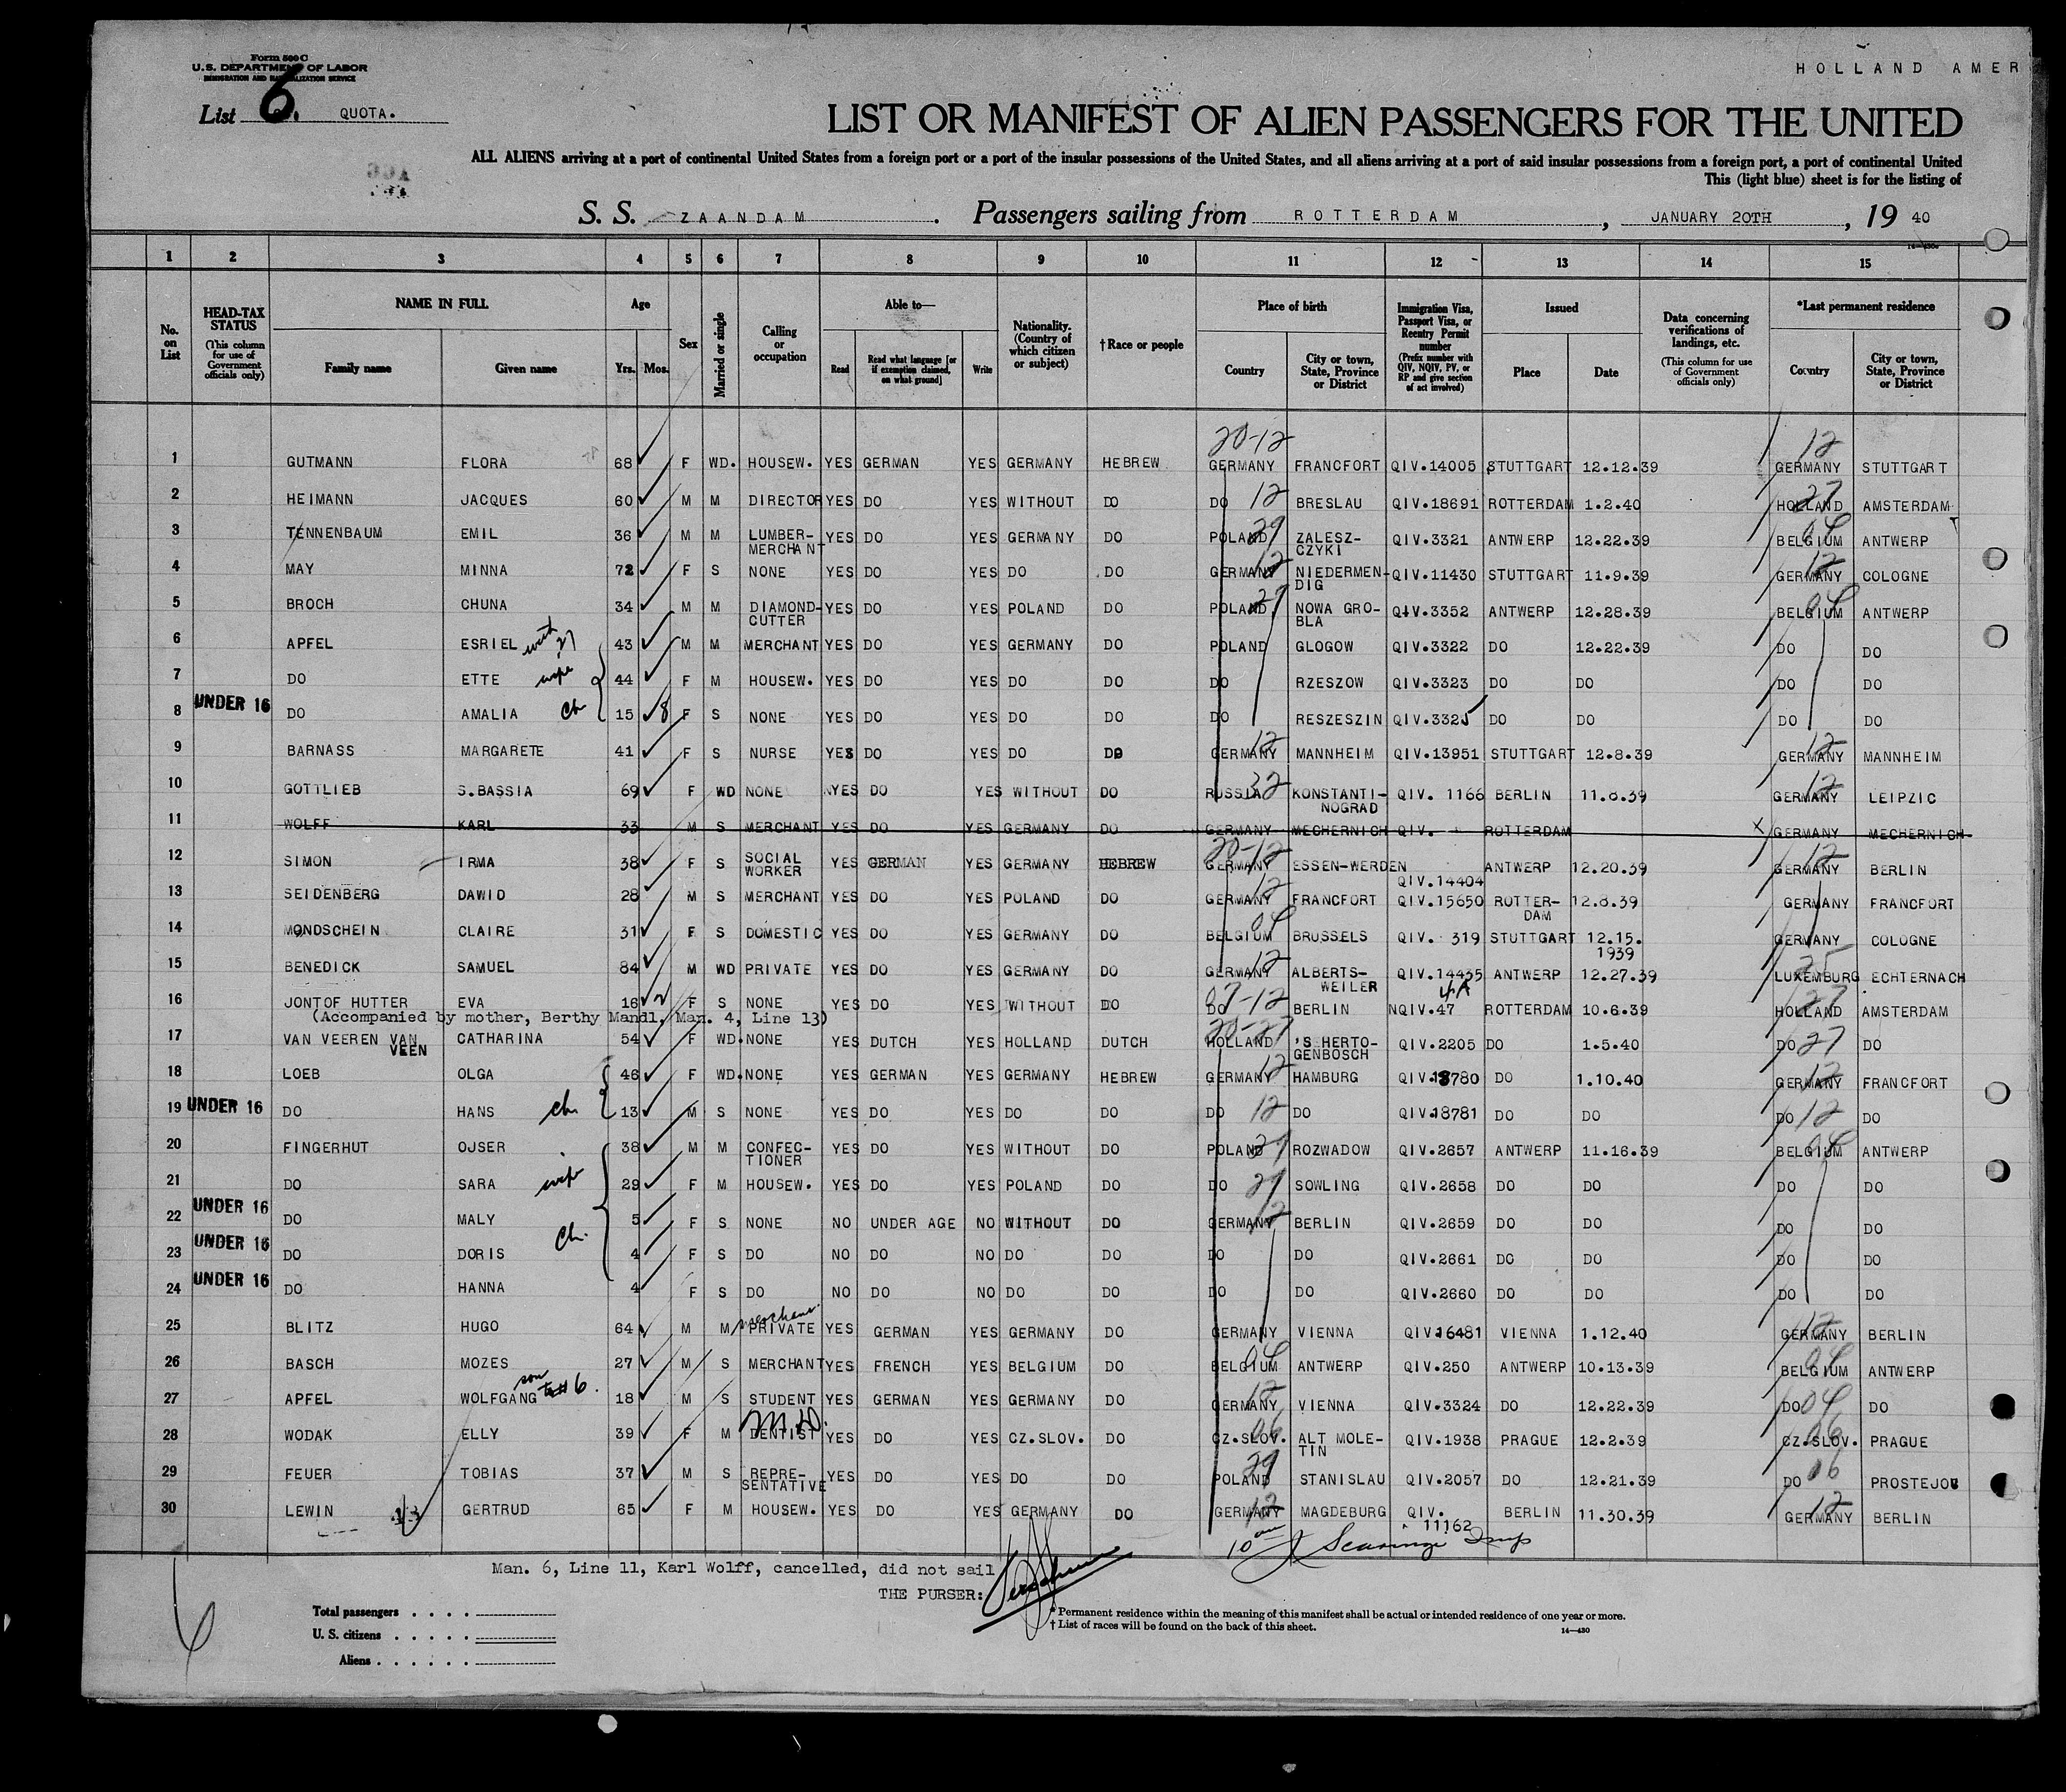 Form 500 C
U.S. DEPARTMENT OF LABOR
IMMIGRATION AND NATURALIZATION SERVICE
HOLLAND AMER
List 6. QUOTA.
LIST OR MANIFEST OF ALIEN PASSENGERS FOR THE UNITED
ALL ALIENS arriving at a port of continental United States from a foreign port or a port of the insular possessions of the United States, and all aliens arriving at a port of said insular possessions from a foreign port, a port of continental United
This (light blue) sheet is for the listing of
S. S. ZAANDAM. Passengers sailing from ROTTERDAM, JANUARY 20TH, 19 40
1 2 3 4 5 6 7 8 9 10 11 12 13 14 15
No. on List
HEAD-TAX STATUS (This column for use of Government officials only)
NAME IN FULL
Family name Given name
Age
Yrs. Mos.
Sex
Married or single
Calling or occupation
Able to—
Read
Read what language [or if exemption claimed, on what ground]
Write
Nationality. (Country of which citizen or subject)
† Race or people
Place of birth
Country
City or town, State, Province or District
Immigration Visa, Passport Visa, or Reentry Permit number (Prefix number with QIV, NQIV, PV, or RP and give section of act involved)
Issued
Place Date
Data concerning verifications of landings, etc. (This column for use of Government officials only)
*Last permanent residence
Country
City or town, State, Province or District
20-12 12
1 GUTMANN FLORA 68 F WD. HOUSEW. YES GERMAN YES GERMANY HEBREW GERMANY FRANCFORT QIV.14005 STUTTGART 12.12.39 GERMANY STUTTGART
2 HEIMANN JACQUES 60 M M DIRECTOR YES DO YES WITHOUT DO DO 12 BRESLAU QIV.18691 ROTTERDAM 1.2.40 HOLLAND 27 AMSTERDAM
3 TENNENBAUM EMIL 36 M M LUMBER-MERCHANT YES DO YES GERMANY DO POLAND 29 ZALESZ-CZYKI QIV.3321 ANTWERP 12.22.39 BELGIUM 04 ANTWERP
4 MAY MINNA 72 F S NONE YES DO YES DO DO GERMANY 12 NIEDERMEN-DIG QIV.11430 STUTTGART 11.9.39 GERMANY 12 COLOGNE
5 BROCH CHUNA 34 M M DIAMOND-CUTTER YES DO YES POLAND DO POLAND 29 NOWA GRO-BLA QIV.3352 ANTWERP 12.28.39 BELGIUM 04 ANTWERP
6 APFEL ESRIEL with 27 43 M M MERCHANT YES DO YES GERMANY DO POLAND GLOGOW QIV.3322 DO 12.22.39 DO DO
7 DO ETTE wife 44 F M HOUSEW. YES DO YES DO DO DO RZESZOW QIV.3323 DO DO DO DO
8 UNDER 16 DO AMALIA ch 15 8 F S NONE YES DO YES DO DO DO RESZESZIN QIV.3325 DO DO DO DO
9 BARNASS MARGARETE 41 F S NURSE YES DO YES DO DO GERMANY 12 MANNHEIM QIV.13951 STUTTGART 12.8.39 GERMANY 12 MANNHEIM
10 GOTTLIEB S.BASSIA 69 F WD NONE YES DO YES WITHOUT DO RUSSIA 32 KONSTANTI-NOGRAD QIV. 1166 BERLIN 11.8.39 GERMANY 12 LEIPZIC
11 WOLFF KARL 33 M S MERCHANT YES DO YES GERMANY DO GERMANY MECHERNICH QIV. - ROTTERDAM X GERMANY MECHERNICH
12 SIMON IRMA 38 F S SOCIAL WORKER YES GERMAN YES GERMANY HEBREW 20-12 GERMANY ESSEN-WERDEN QIV.14404 ANTWERP 12.20.39 GERMANY 12 BERLIN
13 SEIDENBERG DAWID 28 M S MERCHANT YES DO YES POLAND DO GERMANY 12 FRANCFORT QIV.15650 ROTTER-DAM 12.8.39 GERMANY FRANCFORT
14 MONDSCHEIN CLAIRE 31 F S DOMESTIC YES DO YES GERMANY DO BELGIUM 04 BRUSSELS QIV. 319 STUTTGART 12.15.1939 GERMANY COLOGNE
15 BENEDICK SAMUEL 84 M WD PRIVATE YES DO YES GERMANY DO GERMANY 12 ALBERTS-WEILER QIV.14435 ANTWERP 12.27.39 LUXEMBURG 25 ECHTERNACH
16 JONTOF HUTTER EVA 16 F S NONE YES DO YES WITHOUT DO DO 07-12 BERLIN NQIV.47 4A ROTTERDAM 10.6.39 HOLLAND 27 AMSTERDAM
(Accompanied by mother, Berthy Mandl, Man. 4, Line 13)
17 VAN VEEREN VAN VEEN CATHARINA 54 F WD. NONE YES DUTCH YES HOLLAND DUTCH 20-27 HOLLAND 'S HERTO-GENBOSCH QIV.2205 DO 1.5.40 DO 27 DO
18 LOEB OLGA 46 F WD. NONE YES GERMAN YES GERMANY HEBREW GERMANY 12 HAMBURG QIV.18780 DO 1.10.40 GERMANY 12 FRANCFORT
19 UNDER 16 DO HANS ch. 13 M S NONE YES DO YES DO DO DO 12 DO QIV.18781 DO DO DO 12 DO
20 FINGERHUT OJSER 38 M M CONFEC-TIONER YES DO YES WITHOUT DO POLAND 29 ROZWADOW QIV.2657 ANTWERP 11.16.39 BELGIUM 04 ANTWERP
21 DO SARA wife 29 F M HOUSEW. YES DO YES POLAND DO DO 29 SOWLING QIV.2658 DO DO DO DO
22 UNDER 16 DO MALY 5 F S NONE NO UNDER AGE NO WITHOUT DO GERMANY 12 BERLIN QIV.2659 DO DO DO DO
23 UNDER 16 DO DORIS ch. 4 F S DO NO DO NO DO DO DO DO QIV.2661 DO DO DO DO
24 UNDER 16 DO HANNA 4 F S DO NO DO NO DO DO DO DO QIV.2660 DO DO DO DO
25 BLITZ HUGO 64 M M PRIVATE YES GERMAN YES GERMANY DO GERMANY VIENNA QIV16481 VIENNA 1.12.40 GERMANY 12 BERLIN
26 BASCH MOZES 27 M S MERCHANT YES FRENCH YES BELGIUM DO BELGIUM 04 ANTWERP QIV.250 ANTWERP 10.13.39 BELGIUM 04 ANTWERP
27 APFEL WOLFGANG son to #6. 18 M S STUDENT YES GERMAN YES GERMANY DO GERMANY 12 VIENNA QIV.3324 DO 12.22.39 DO 04 DO
28 WODAK ELLY 39 F M M.D. DENTIST YES DO YES CZ.SLOV. DO CZ.SLOV. 06 ALT MOLE-TIN QIV.1938 PRAGUE 12.2.39 CZ.SLOV. 06 PRAGUE
29 FEUER TOBIAS 37 M S REPRE-SENTATIVE YES DO YES DO DO POLAND 29 STANISLAU QIV.2057 DO 12.21.39 DO 06 PROSTEJOV
30 LEWIN GERTRUD 65 F M HOUSEW. YES DO YES GERMANY DO GERMANY 12 MAGDEBURG QIV. 11162 BERLIN 11.30.39 GERMANY 12 BERLIN
Man. 6, Line 11, Karl Wolff, cancelled, did not sail
THE PURSER:
Total passengers . . . .
U. S. citizens . . . . .
Aliens . . . . . .
* Permanent residence within the meaning of this manifest shall be actual or intended residence of one year or more.
† List of races will be found on the back of this sheet.
14—430
6